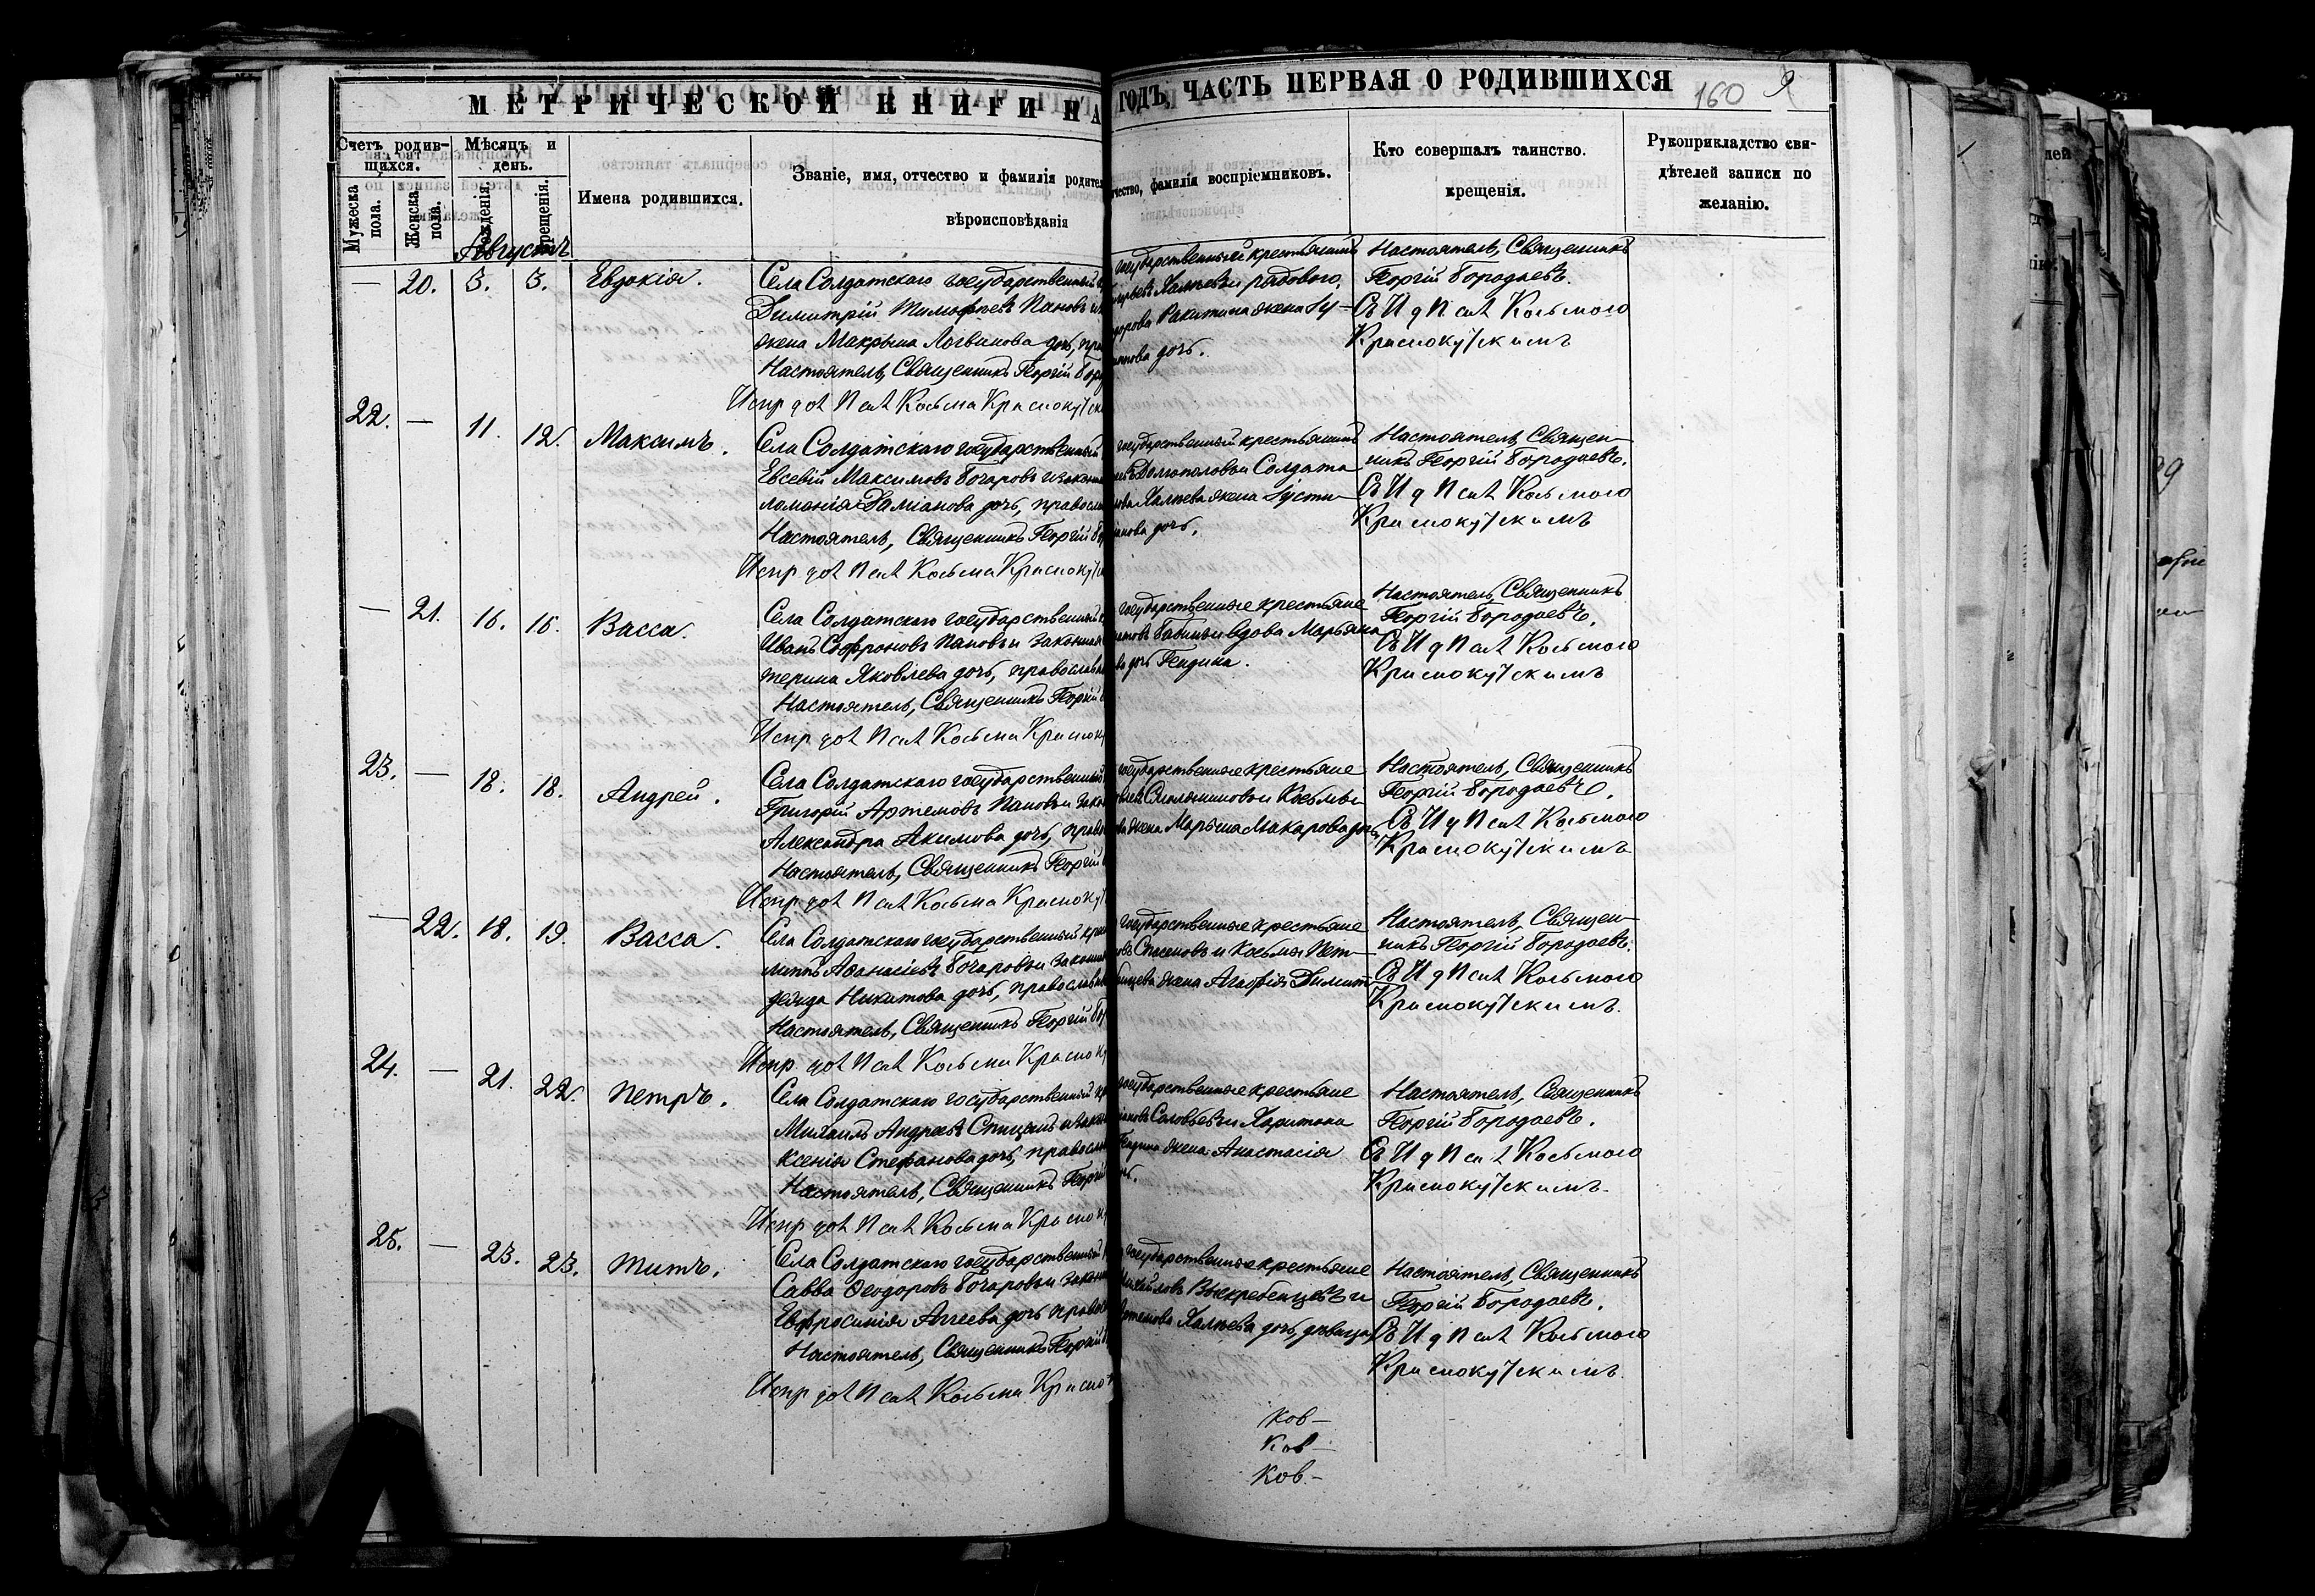 МЕТРИЧЕСКОЙ КНИГИ НА
ГОДЪ, ЧАСТЬ ПЕРВАЯ О РОДИВШИХСЯ
160
9
Счетъ родив-
шихся.
Мужеска
пола.
Женска
пола.
Мѣсяцъ и
день.
рожденія.
крещенія.
Имена родившихся.
Званіе, имя, отчество и фамилія родител
вѣроисповѣданія
чество, фамилія воспріемниковъ.
Кто совершалъ таинство.
крещенія.
Рукоприкладство сви-
дѣтелей записи по
желанію.
Августъ
— 20. 3. 3. Евдокія.
Села Солдатскаго государственный
Димитрій Тимофеевъ Пановъ
жена Макрына Логвинова дочь,
Настоятель, Священникъ Георгій
Испр дол Псал Косьма Красноку
государственный крестьянинъ
рядового,
Ракитина жена
дочь.
Настоятель, Священникъ
Георгій Бородаевъ.
Съ И д Псал Косьмою
Краснокутскимъ
22. — 11. 12. Максимъ.
Села Солдатскаго государственный
Евсевій Максимовъ Бочаровъ
Даміанова дочь,
Настоятель, Священникъ Георгій
Испр дол Псал Косьма Краснокут
государственный крестьянинъ
Долгополовъ и Солдата
жена Іусти-
нова дочь.
Настоятель, Священ-
никъ Георгій Бородаевъ.
Съ И д Псал Косьмою
Краснокутскимъ
— 21. 16. 16. Васса.
Села Солдатскаго государственный
Иванъ Софроновъ Пановъ и законная
терина Яковлева дочь, православн
Настоятель, Священникъ Георгій
Испр дол Псал Косьма Красноку
государственные крестьяне
вдова Марьяна
дочь Гендина.
Настоятель, Священникъ
Георгій Бородаевъ.
Съ И д Псал Косьмою
Краснокутскимъ
23. — 18. 18. Андрей.
Села Солдатскаго государственный
Григорій Артемовъ Пановъ и зако
Александра Акимова дочь, право
Настоятель, Священникъ Георгій
Испр дол Псал Косьма Краснокут
государственные крестьяне
и Косьмы
жена Марьина Макарова дочь,
Настоятель, Священникъ
Георгій Бородаевъ.
Съ И д Псал Косьмою
Краснокутскимъ
— 22. 18. 19. Васса.
Села Солдатскаго государственный крес
липпъ Аѳанасіевъ Бочаровъ и законн
Никитова дочь, православн
Настоятель, Священникъ Георгій Бор
Испр дол Псал Косьма Красноку
государственные крестьяне
и Косьмы Пет-
жена Агафія Димит
Настоятель, Священ-
никъ Георгій Бородаевъ.
Съ И д Псал Косьмою
Краснокутскимъ.
24. — 21. 22. Петръ.
Села Солдатскаго государственный кр
Михаилъ Андреевъ Спицынъ и закон
Ксенія Стефанова дочь, правосла
Настоятель, Священникъ Георгій
Испр дол Псал Косьма Красноку
государственные крестьяне
Соловьевъ и Харитона
Гендина жена Анастасія
Настоятель, Священникъ
Георгій Бородаевъ.
Съ И д Псал Косьмою
Краснокутскимъ.
25. — 23. 23. Титъ.
Села Солдатскаго государственный
Савва Ѳеодоровъ Бочаровъ и законн
Евфросинія Аггеева дочь правос
Настоятель, Священникъ Георгій
Испр дол Псал Косьма Красно
государственные крестьяне
Выскребенцевъ и
дочь, дѣвица
Настоятель, Священникъ
Георгій Бородаевъ.
Съ И д Псал Косьмою
Краснокутскимъ.
Ков-
Ков-
Ков-